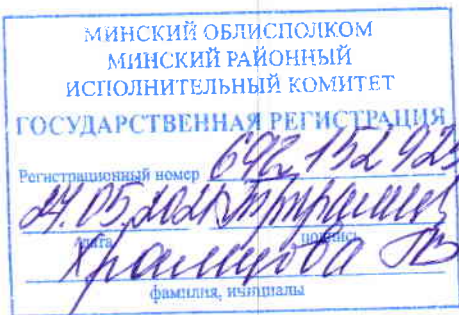 МИНСКИЙ ОБЛИСПОЛКОМ
МИНСКИЙ РАЙОННЫЙ
ИСПОЛНИТЕЛЬНЫЙ КОМИТЕТ
ГОСУДАРСТВЕННАЯ РЕГИСТРАЦИЯ
Регистрационный номер 692152923
24.05.2021
дата подпись
Храмцова
фамилия, инициалы